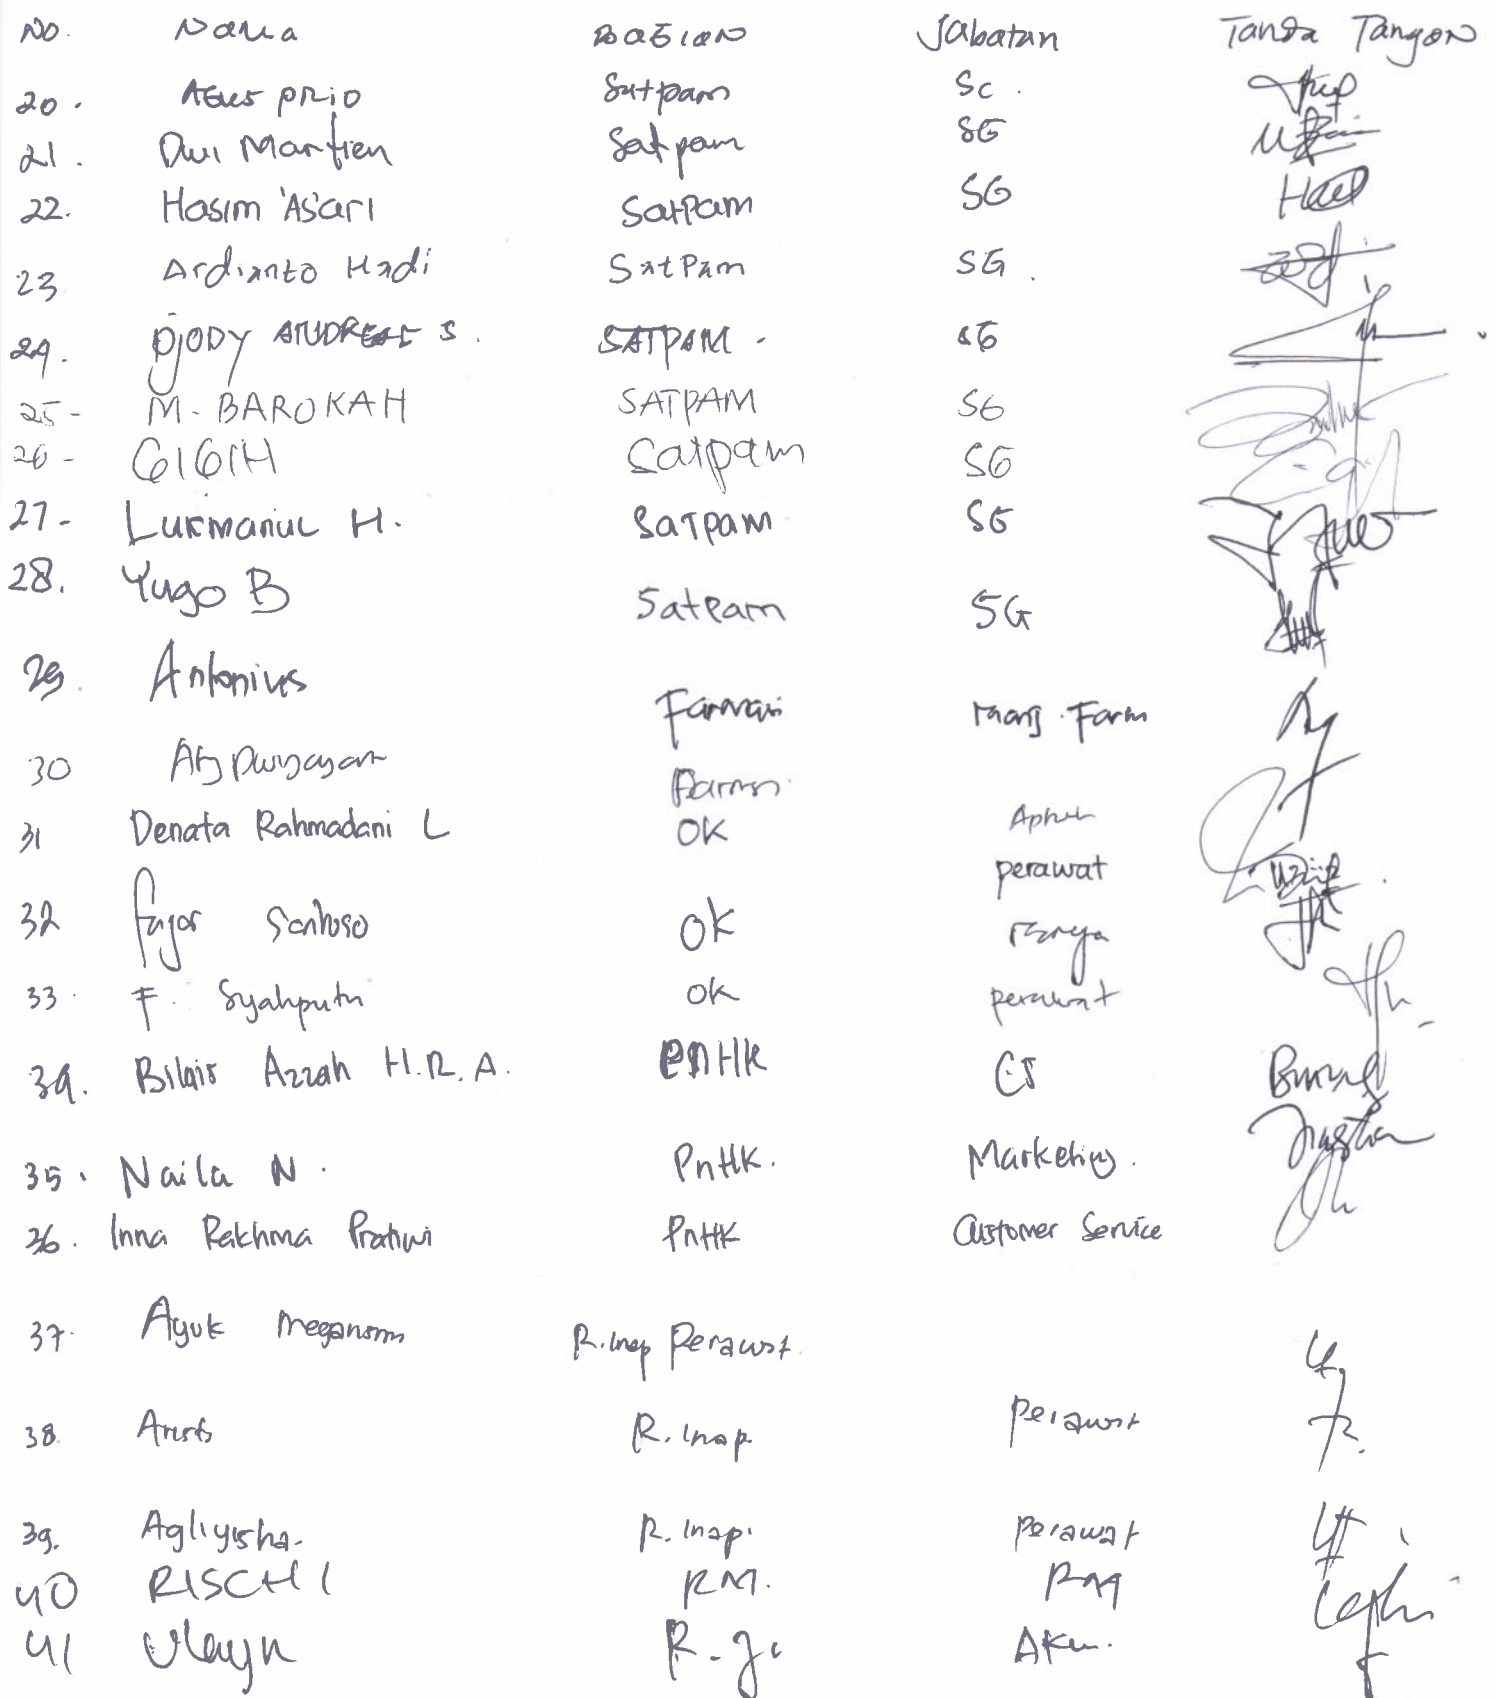 No. Nama Bagian Jabatan Tanda Tangan
20. Agus prio Satpam Sc.
21. Dwi Martien Satpam SG
22. Hasim 'As'ari Satpam SG
23 Ardianto Hadi SatPam SG.
24. DJODY ANDREAS S. SATPAM. SG
25- M. BAROKAH SATPAM SG
26- GIGIH Satpam SG
27- Lukmanul H. Satpam SG
28. Yugo B Satpam SG
29. Antonius Farmasi Manj. Farm
30 Farmasi
31 Denata Rahmadani L OK perawat
32 Fajar Santoso OK
33. F. Syahputra OK perawat
34. Bilqis Azzah H.R.A. PnHK CS
35. Naila N. PnHK. Marketing.
36. Inna Rakhma Pratiwi PnHK Customer Service
37. Ayuk R.Inap Perawat.
38. R. Inap perawat
39. R. Inap. perawat
40 RISCHI RM. RM
41